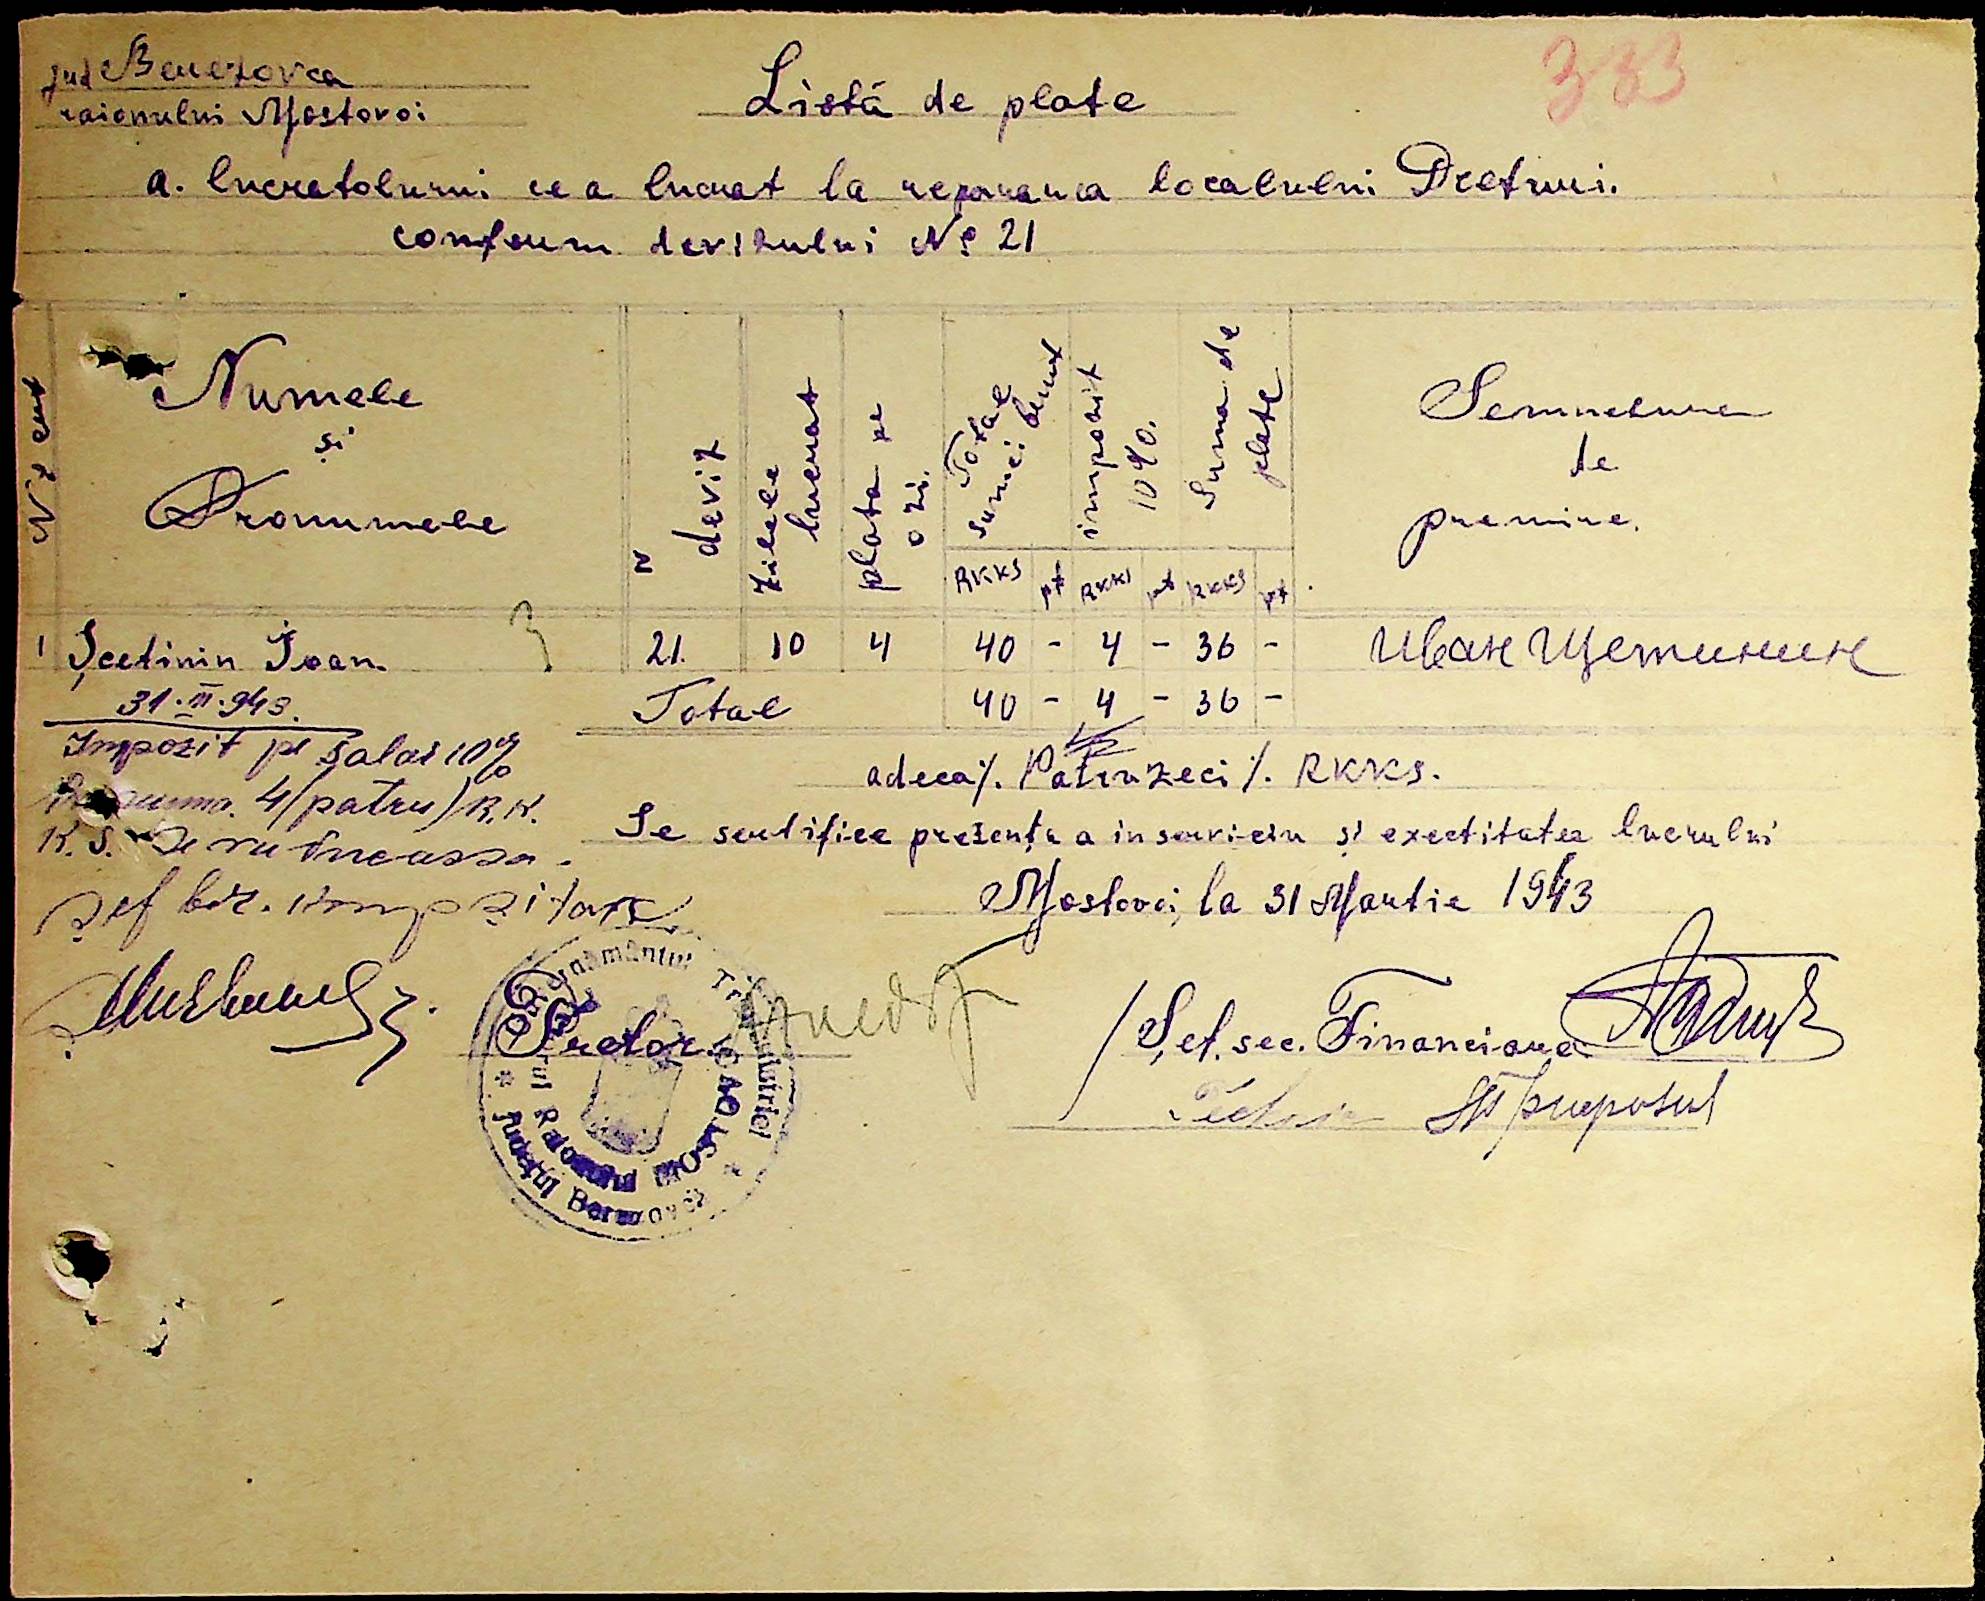 jud Berezovca
raionului Mostovoi
333
Listă de plate
a. lucretolurui ce a lucrat la repararea localului Preturii.
conform devizului № 21
№ crt
Numele
și
Pronumele
N deviz
Zilele lucrat
plata pe o zi.
Total sumei brut
impozit 10%.
Suma de plate
Semnelure
de
premire.
RKKS pf RKKS pf RKKS pf
1 Șcetinin Ioan 21. 10 4 40 - 4 - 36 - Иван Щетинин
31.III.943. Total 40 - 4 - 36 -
Impozit pe salar 10%
4 (patru) R.K.
K.S. Se va încassa.
șef bir. impozitare
adeca ٪. Patruzeci ٪. RKKS.
Se sertifice prezența in serviciu și exectitatea lucrului
Mostovoi, la 31 Martie 1943
Pretor
Șef. sec. Financiara
Guvernământul Transnistriei
Județul Berezovca
Raionului MOSTOVOI